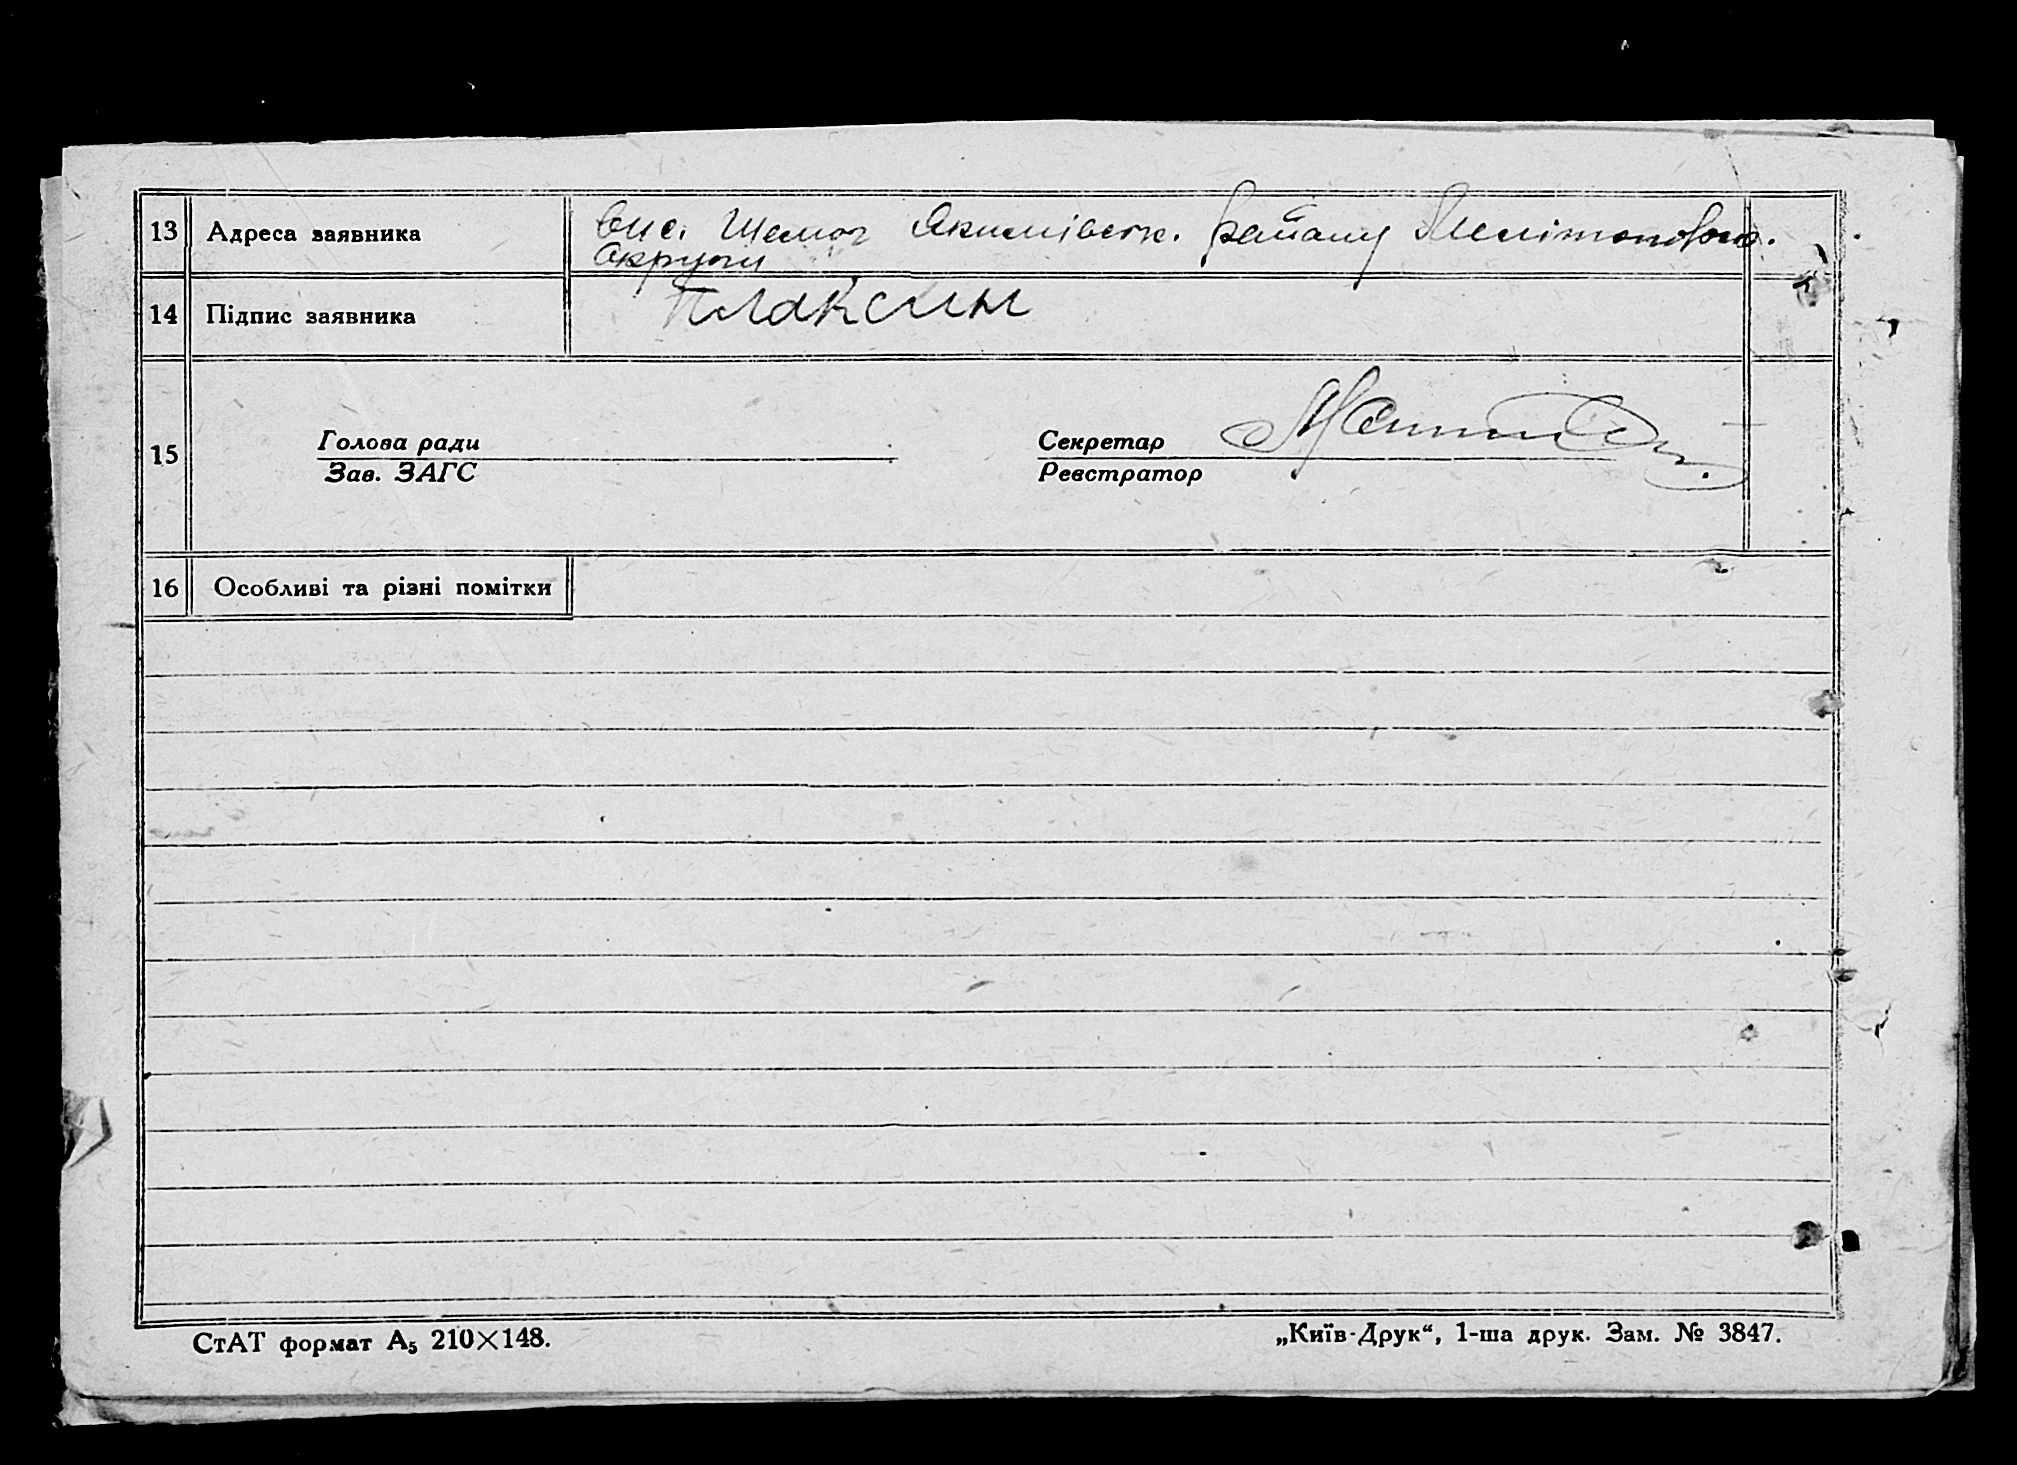 13 Адреса заявника вис. Якимівськ. району Мелітопольск.
Округи
14 Підпис заявника Плаксин
15 Голова ради Секретар
Зав. ЗАГС Реєстратор
16 Особливі та різні помітки
СтАТ формат А5 210×148. „Київ-Друк“, 1-ша друк. Зам. № 3847.